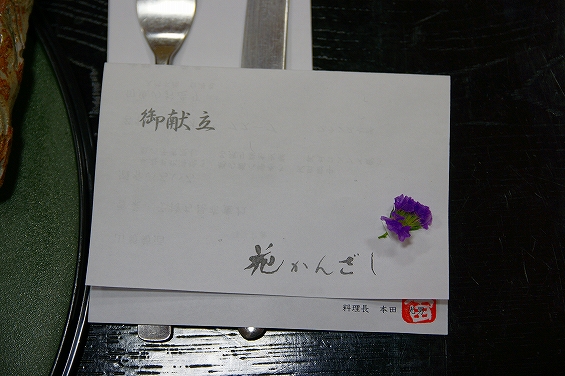 御献立
花かんざし
料理長 本田